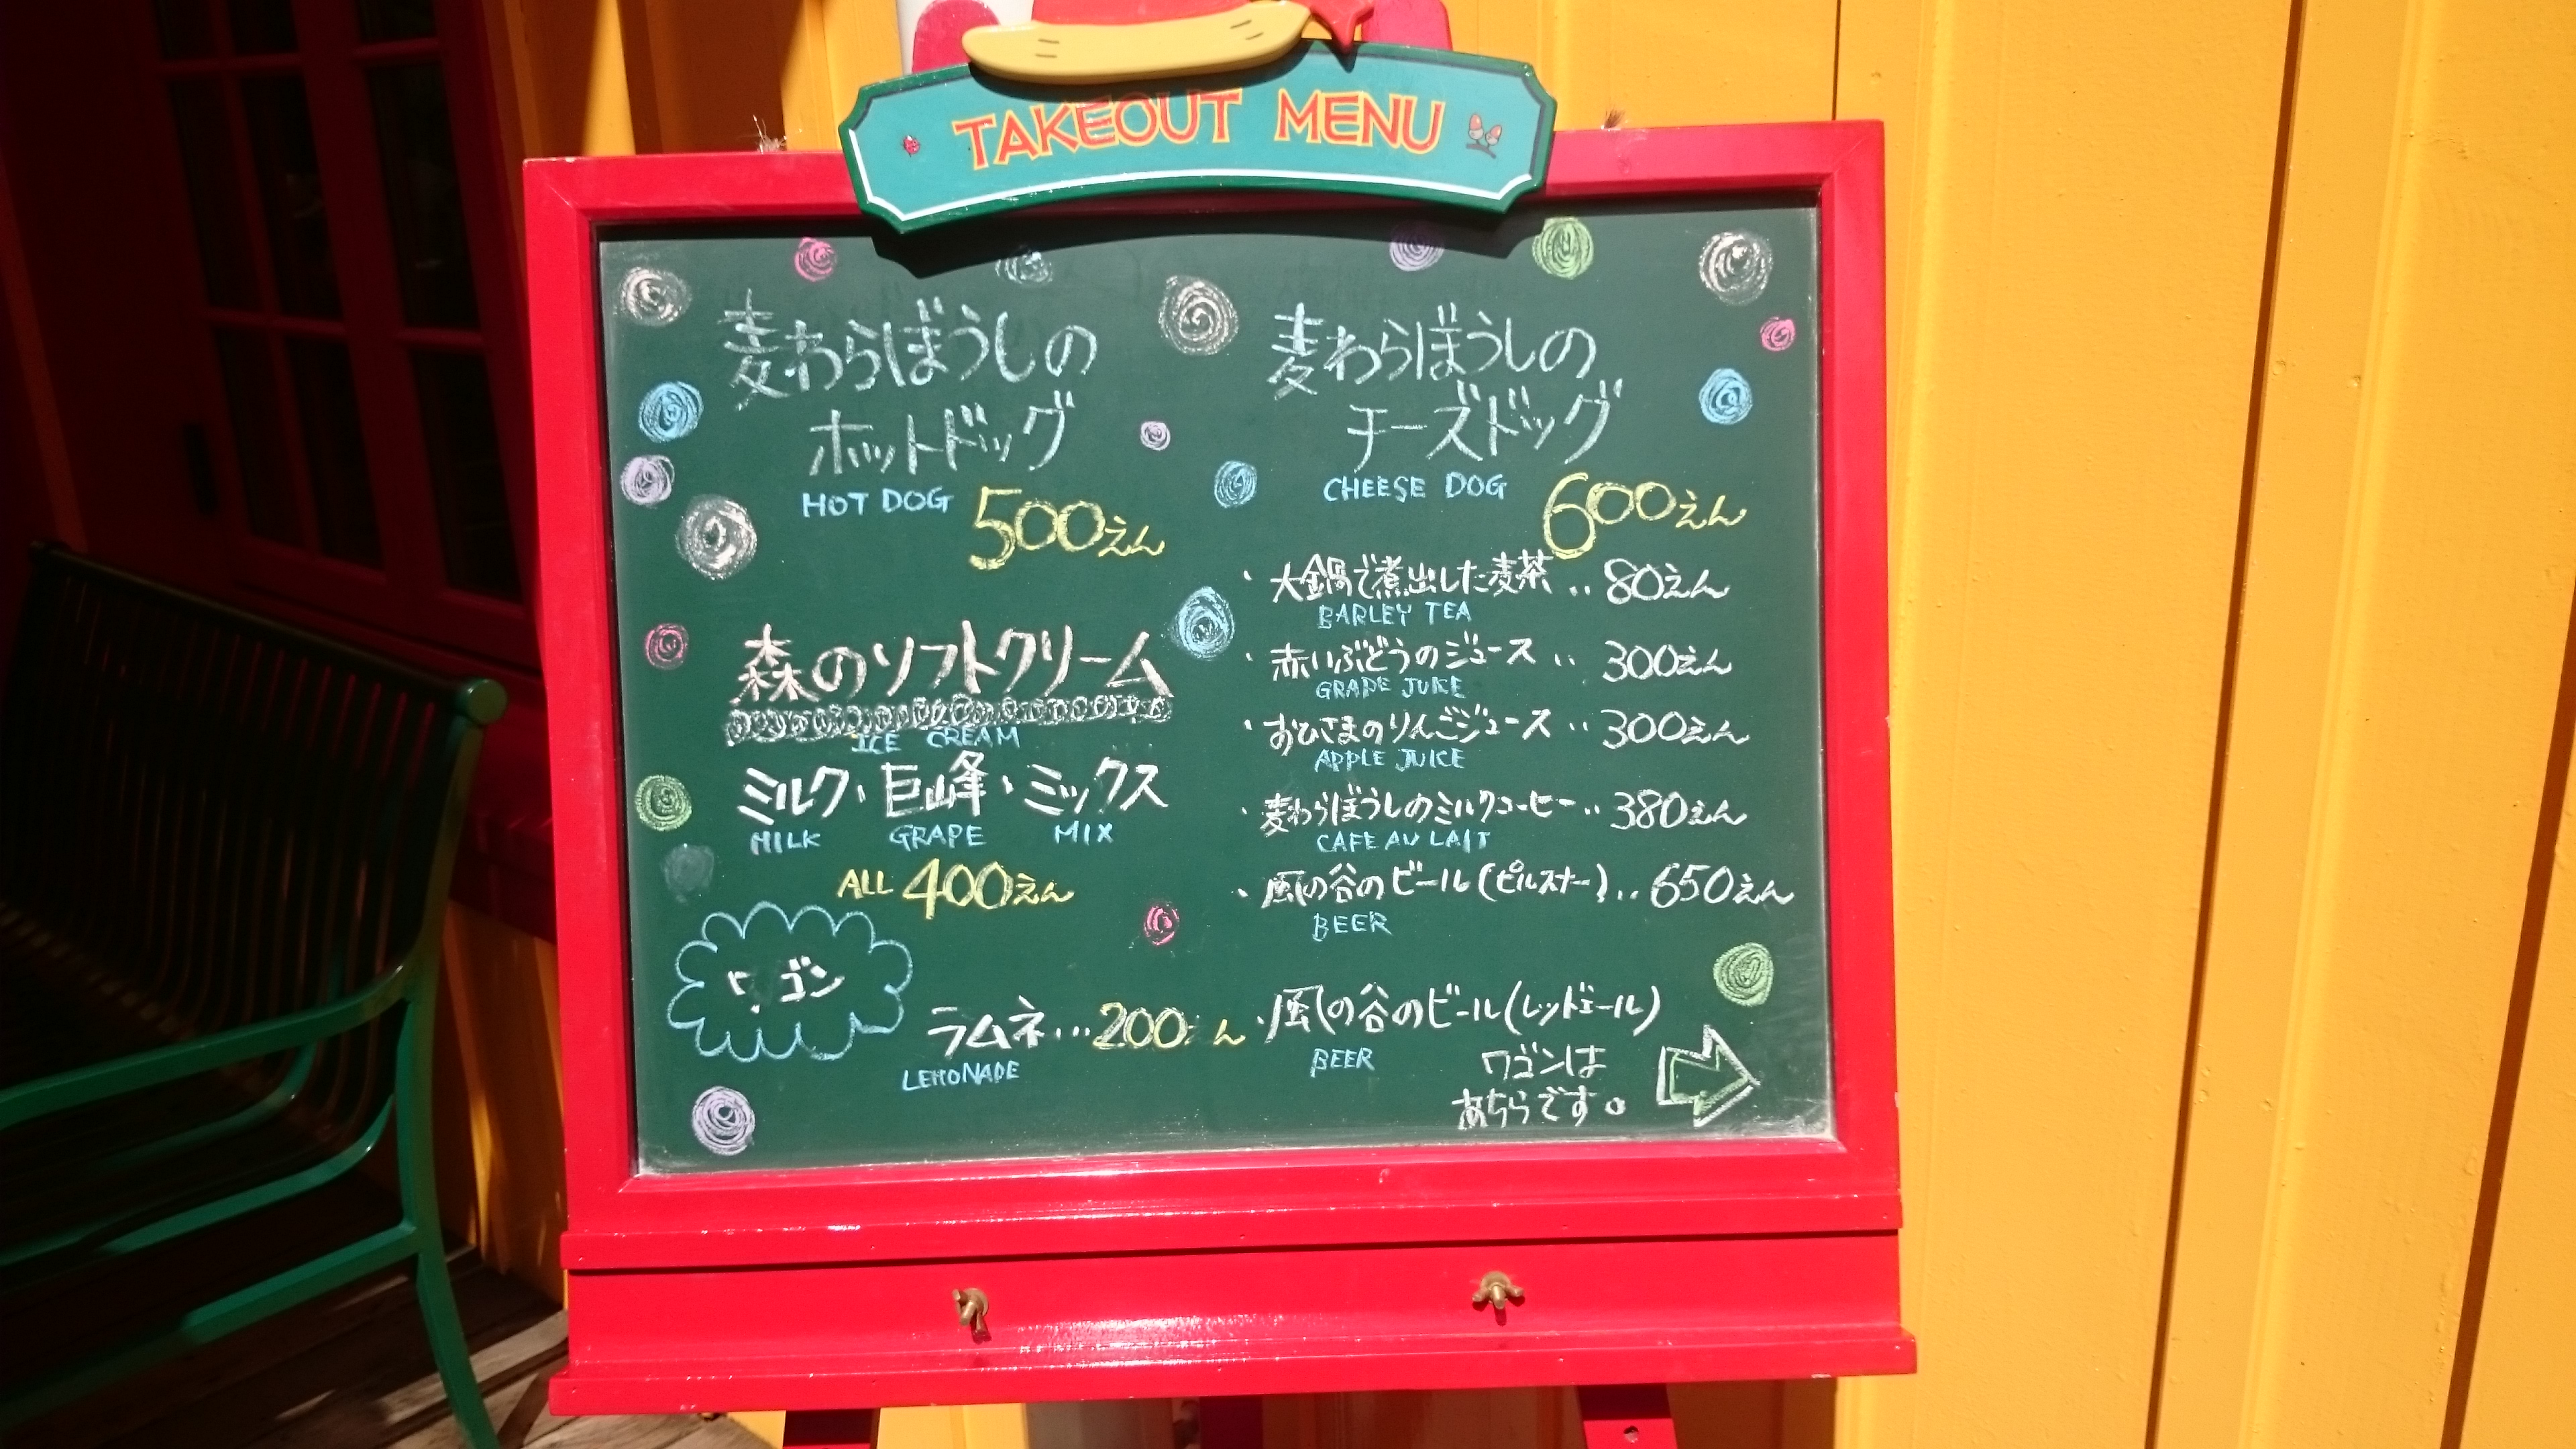 TAKEOUT MENU
麦わらぼうしの
ホットドッグ
HOT DOG 500えん
麦わらぼうしの
チーズドッグ
CHEESE DOG 600えん
森のソフトクリーム
ICE CREAM
ミルク・巨峰・ミックス
MILK GRAPE MIX
ALL 400えん
・大鍋で煮出した麦茶‥80えん
BARLEY TEA
・赤いぶどうのジュース‥300えん
GRAPE JUICE
・おひさまのりんごジュース‥300えん
APPLE JUICE
・麦わらぼうしのミルクコーヒー‥380えん
CAFE AU LAIT
・風の谷のビール(ピルスナー)‥650えん
BEER
ワゴン
ラムネ…200 ん
LEMONADE
・風の谷のビール(レッドエール)
BEER
ワゴンは
あちらです。